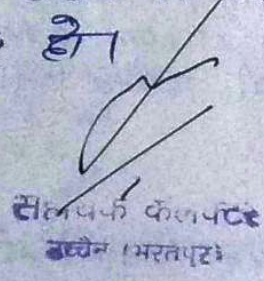 हो।
सहायक कलक्टर
उच्चैन (भरतपुर)